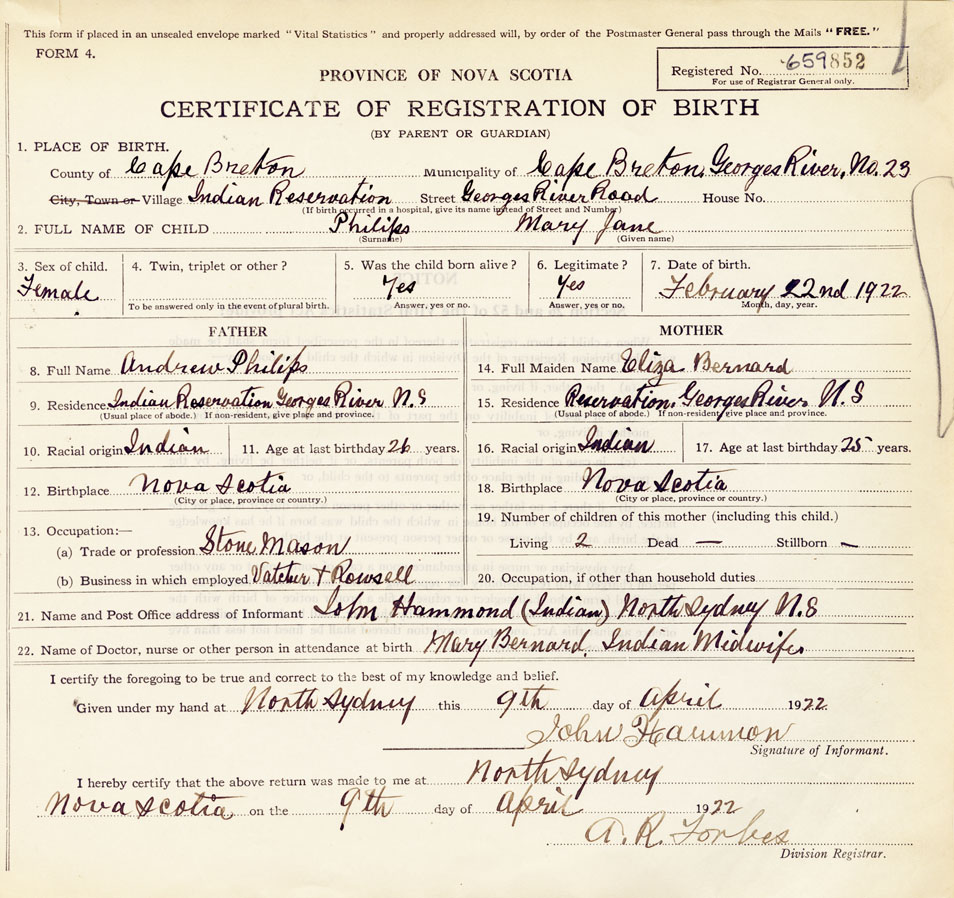 This form if placed in an unsealed envelope marked "Vital Statistics" and properly addressed will, by order of the Postmaster General pass through the Mails "FREE."
FORM 4.
Registered No. 659852
For use of Registrar General only.
PROVINCE OF NOVA SCOTIA
CERTIFICATE OF REGISTRATION OF BIRTH
(BY PARENT OR GUARDIAN)
1. PLACE OF BIRTH.
County of Cape Breton Municipality of Cape Breton, Georges River, No. 23
City, Town or Village Indian Reservation Street Georges River Road House No.
(If birth occurred in a hospital, give its name instead of Street and Number)
2. FULL NAME OF CHILD Philips Mary Jane
(Surname) (Given name)
3. Sex of child. 4. Twin, triplet or other? 5. Was the child born alive? 6. Legitimate? 7. Date of birth.
Female Yes Yes February 22nd 1922
To be answered only in the event of plural birth. Answer, yes or no. Answer, yes or no. Month, day, year.
FATHER
8. Full Name Andrew Philips
9. Residence Indian Reservation Georges River N.S
(Usual place of abode.) If non-resident, give place and province.
10. Racial origin Indian 11. Age at last birthday 26 years.
12. Birthplace Nova Scotia
(City or place, province or country.)
13. Occupation:—
(a) Trade or profession Stone Mason
(b) Business in which employed Vatcher & Rowsell
MOTHER
14. Full Maiden Name Eliza Bernard
15. Residence Reservation, Georges River N.S
(Usual place of abode.) If non-resident, give place and province.
16. Racial origin Indian 17. Age at last birthday 25 years.
18. Birthplace Nova Scotia
(City or place, province or country.)
19. Number of children of this mother (including this child.)
Living 2 Dead — Stillborn —
20. Occupation, if other than household duties
21. Name and Post Office address of Informant John Hammond (Indian) North Sydney N.S
22. Name of Doctor, nurse or other person in attendance at birth Mary Bernard, Indian Midwife
I certify the foregoing to be true and correct to the best of my knowledge and belief.
Given under my hand at North Sydney this 9th day of April 1922
John Hammon
Signature of Informant.
I hereby certify that the above return was made to me at North Sydney
Nova Scotia on the 9th day of April 1922
A. R. Forbes
Division Registrar.